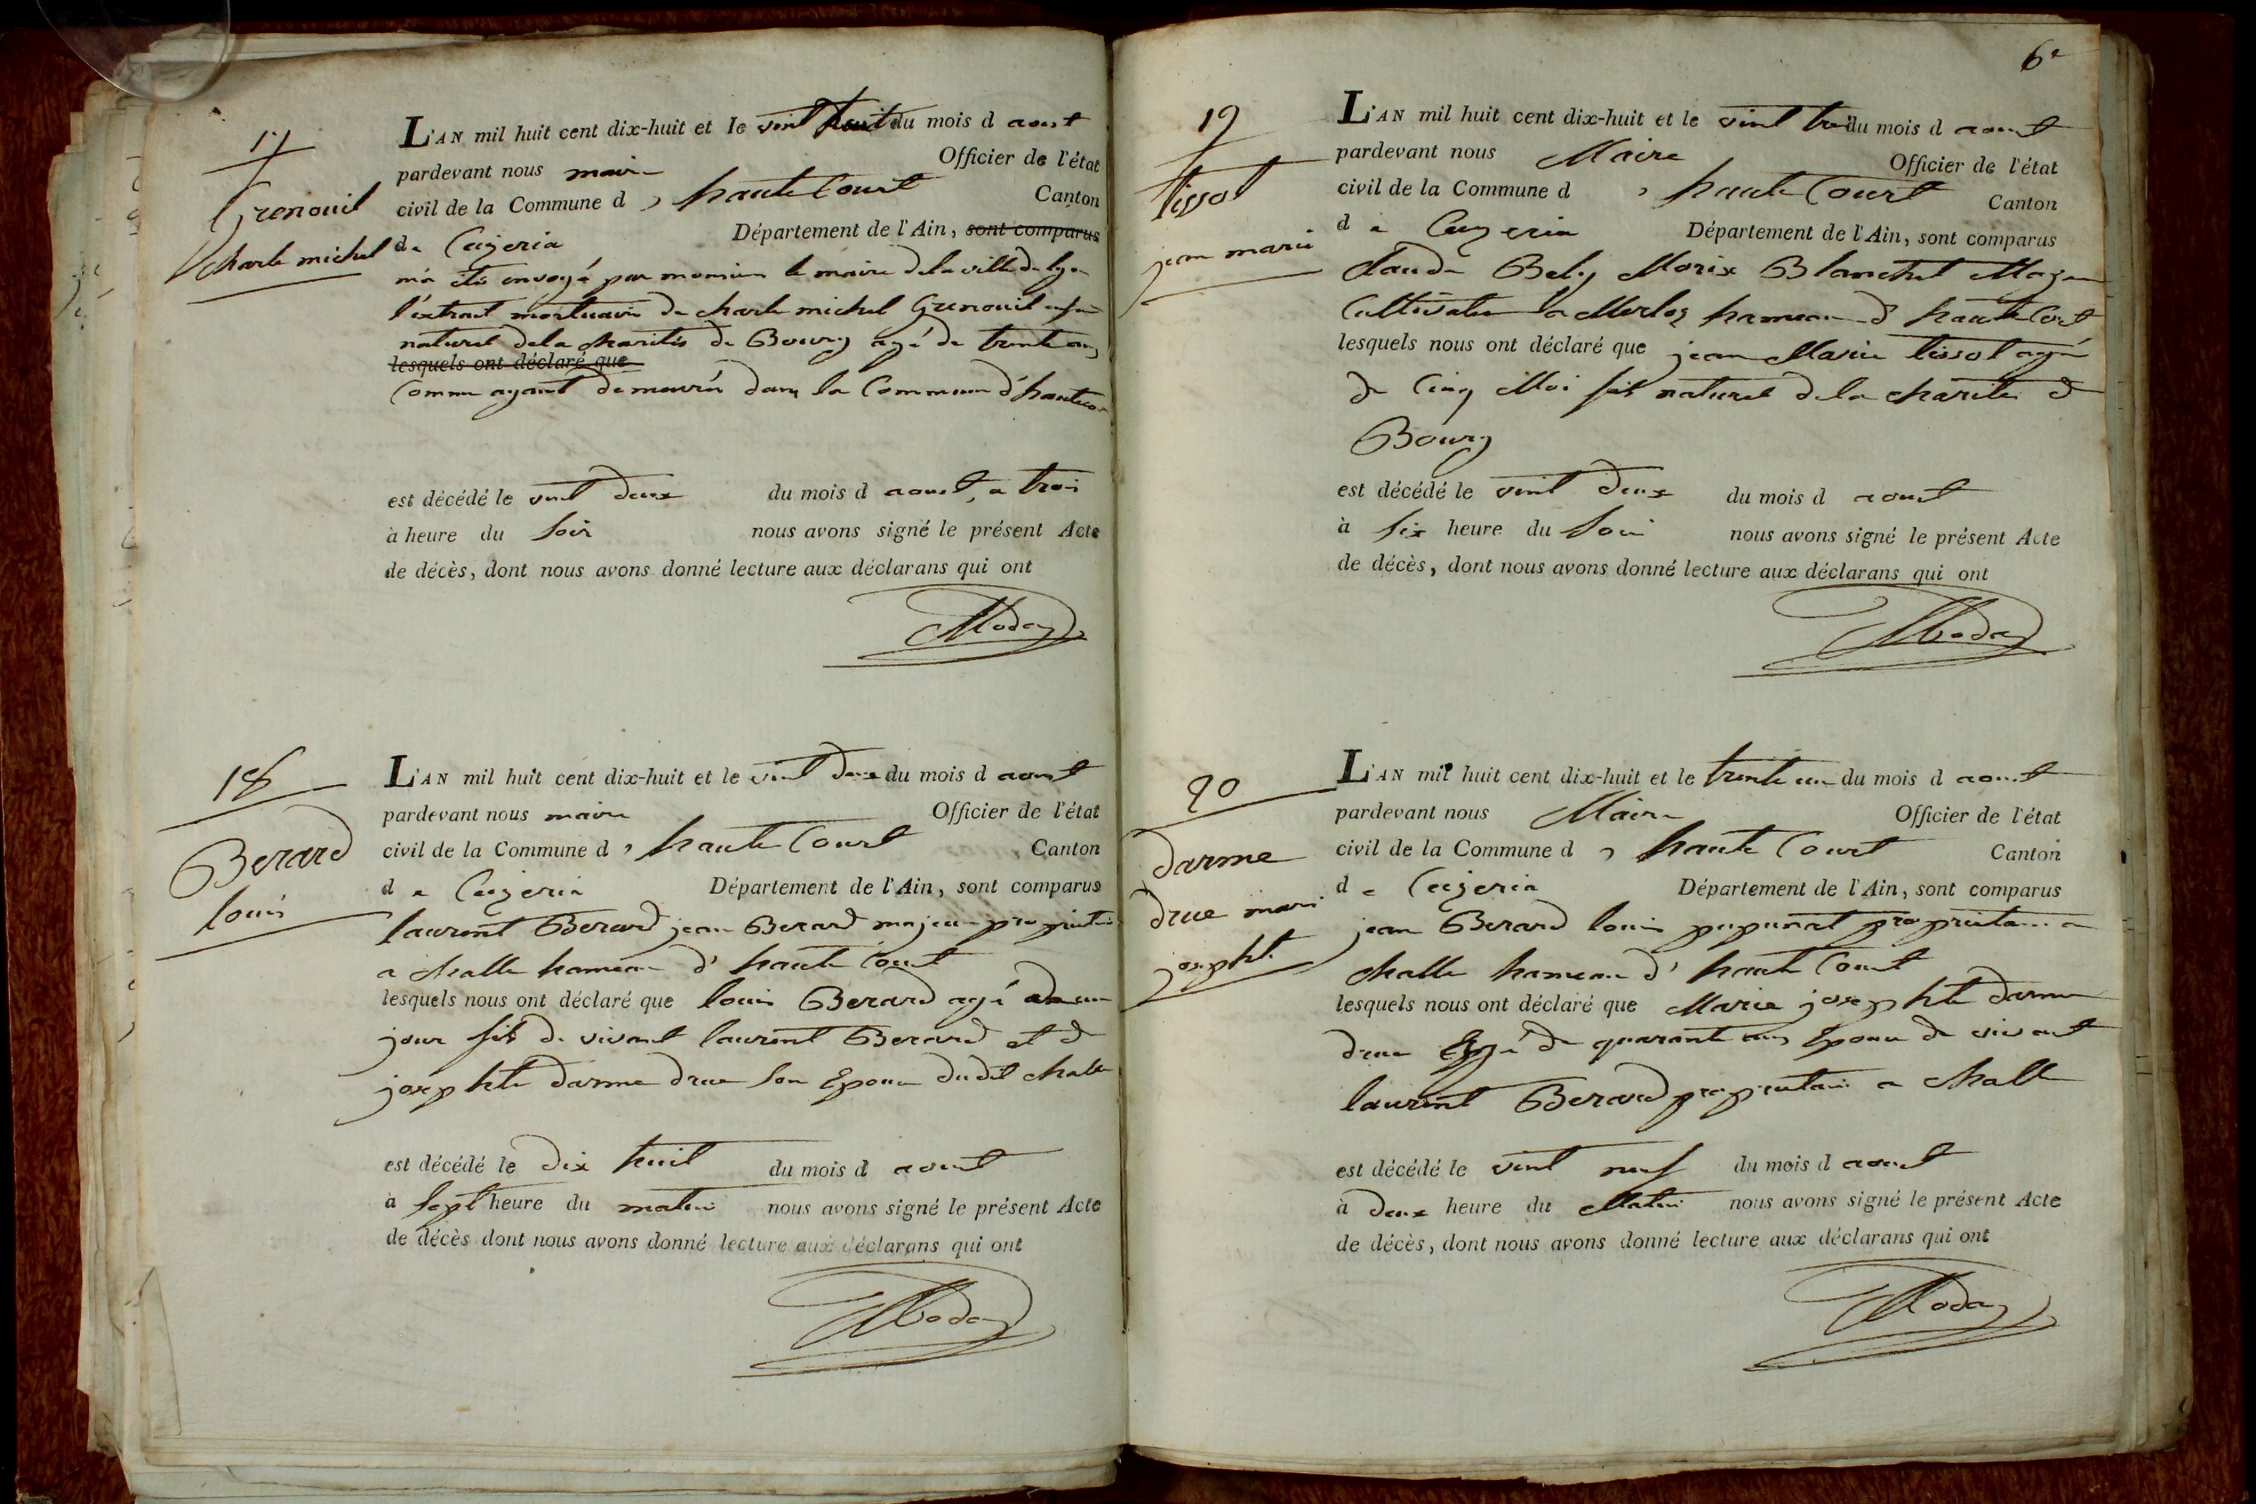 17
Grenouil
charle michel
L'AN mil huit cent dix-huit et le vint huit du mois d aoust
pardevant nous maire Officier de l'état
civil de la Commune d , haute Court Canton
de Ceyzeria Département de l'Ain, sont comparus
m'a été envoyé par monsieur le maire de la ville de lyon
l'extrait mortuaire de charle michel Grenouil enfant
naturel de la charité de Bourg agé de trente ans
lesquels ont déclaré que
Comme ayant demeuré dans la Commune d'hautecour
est décédé le vint deux du mois d aoust, a trois
à heure du soir nous avons signé le présent Acte
de décès, dont nous avons donné lecture aux déclarans qui ont
Moday
18
Berard
louis
L'AN mil huit cent dix-huit et le vint deux du mois d aoust
pardevant nous maire Officier de l'état
civil de la Commune d , haute Court Canton
d e Ceyzeria Département de l'Ain, sont comparus
laurent Berard jean Berard majeur propriétaire
a challe hameau d' haute Court
lesquels nous ont déclaré que louis Berard agé de un
jour fils de vivant laurent Berard et de
josephte darme drue son Epouse dudit challe
est décédé le dix huit du mois d aoust
à sept heure du matin nous avons signé le présent Acte
de décès dont nous avons donné lecture aux déclarans qui ont
Moday
6e
19
tissot
jean marie
L'AN mil huit cent dix-huit et le vint trois du mois d aoust
pardevant nous Maire Officier de l'état
civil de la Commune d , haute Court Canton
d e Ceyzeria Département de l'Ain, sont comparus
Claude Bely Morix Blanchet Majeur
Cultivateur a Merloz hameau d' haute Court
lesquels nous ont déclaré que jean Marie tissot agé
de Cinq Moi fils naturel de la charité de
Bourg
est décédé le vint deux du mois d aoust
à six heure du soir nous avons signé le présent Acte
de décès, dont nous avons donné lecture aux déclarans qui ont
Moday
20
darme
drue mari
josephte
L'AN mil huit cent dix-huit et le trente un du mois d aoust
pardevant nous Maire Officier de l'état
civil de la Commune d , haute Court Canton
d e Ceyzeria Département de l'Ain, sont comparus
jean Berard louis propriétaire a
challe hameau d' haute Court
lesquels nous ont déclaré que Marie josephte darme
drue agé de quarante ans Epouse de vivant
laurent Berard propriétaire a challe
est décédé le vint neuf du mois d aoust
à deux heure du Matin nous avons signé le présent Acte
de décès, dont nous avons donné lecture aux déclarans qui ont
Moday